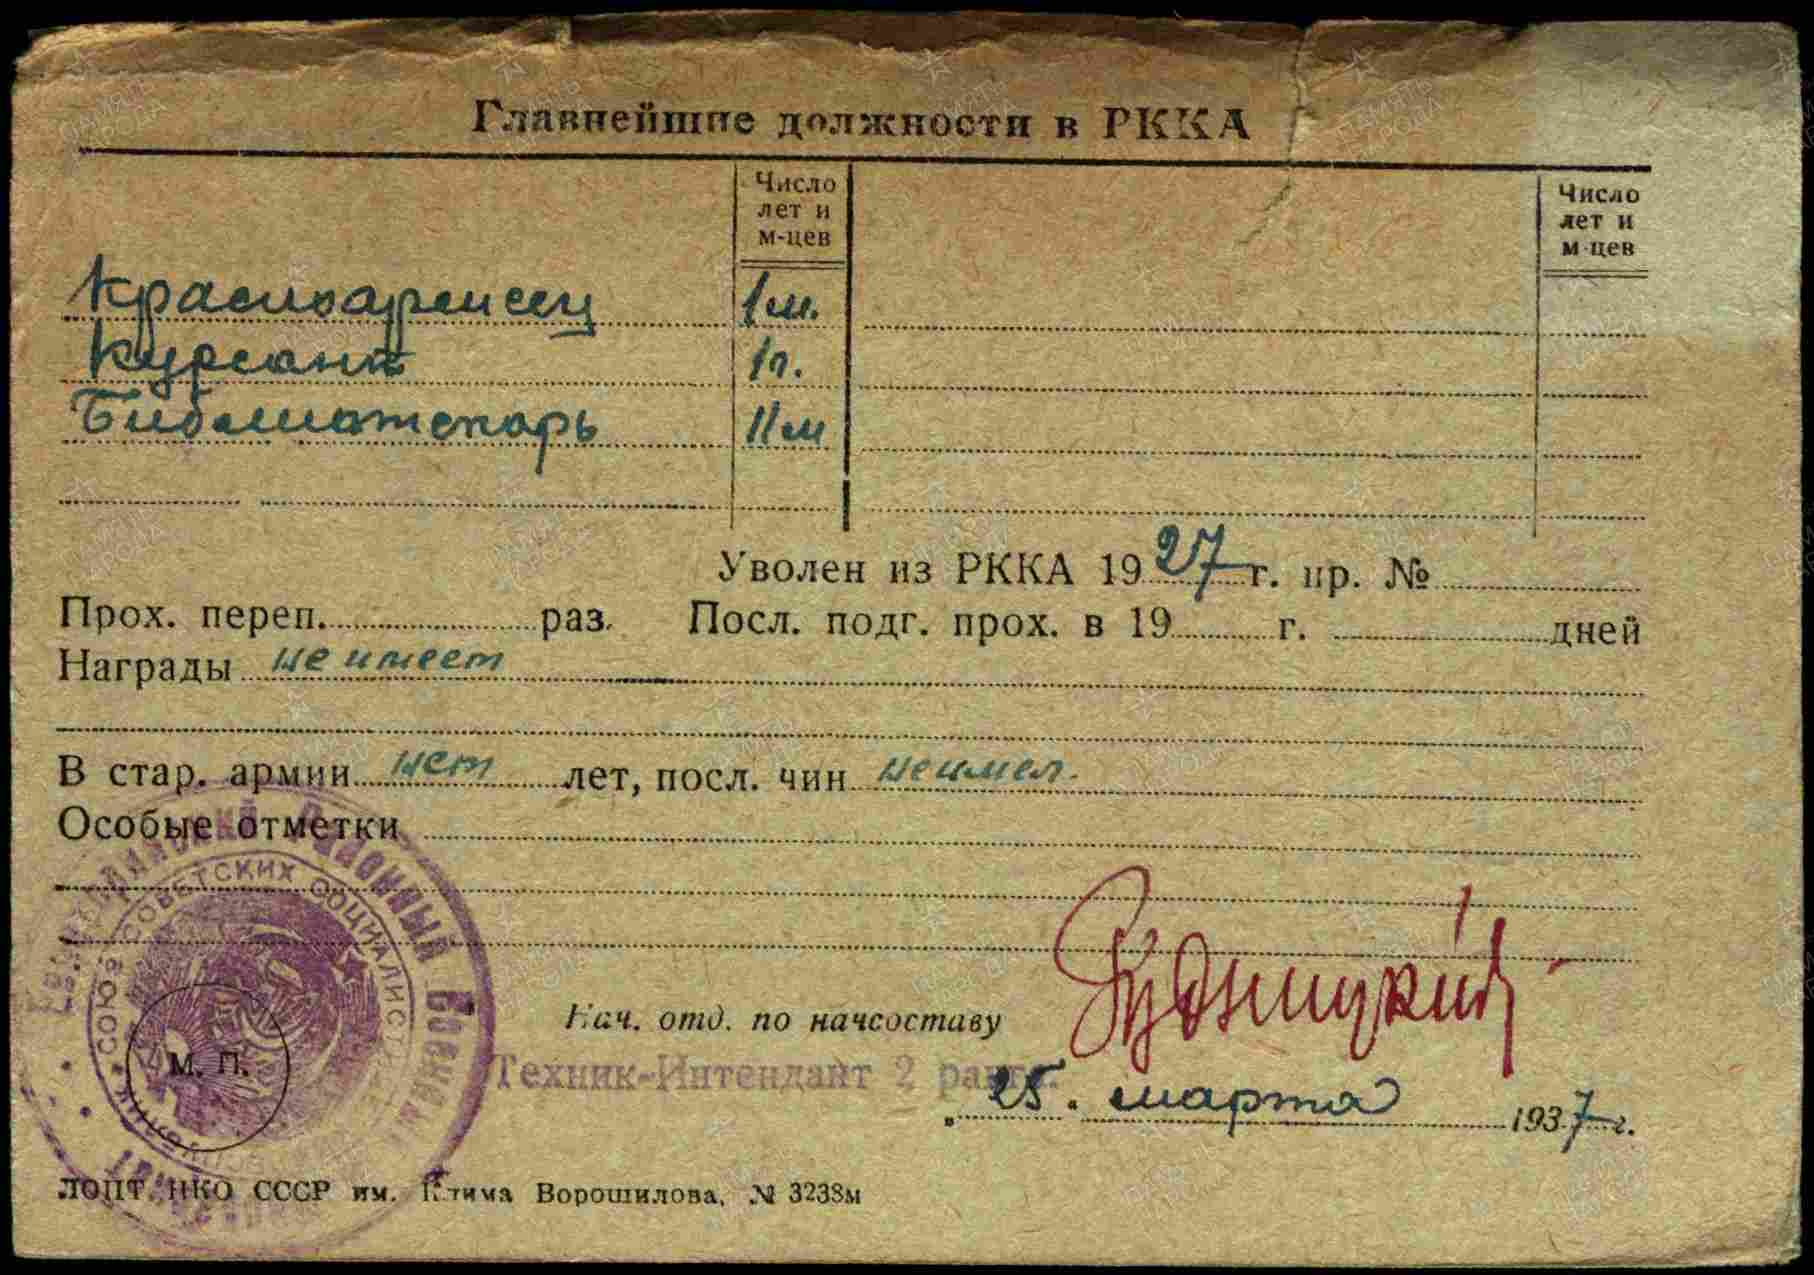 Главнейшие должности в РККА
Число лет и м-цев
Число лет и м-цев
Красноармеец 1 м.
Курсант 1 г.
Библиотекарь 11 м
Уволен из РККА 1927 г. пр. №
Прох. переп. раз. Посл. подг. прох. в 19 г. дней
Награды не имеет
В стар. армии нет лет, посл. чин не имел.
Особые отметки
Районный Военный
Союз Советских Социалист
М. П.
Нач. отд. по начсоставу
Рудницкий
Техник-Интендант 2 ранга.
„25. марта 1937 г.
ЛОПТ НКО СССР им. Клима Ворошилова, № 3238м
ПАМЯТЬ НАРОДА